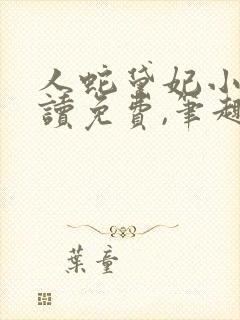 人蛇黛妃小
讀免費,筆趣
葉童